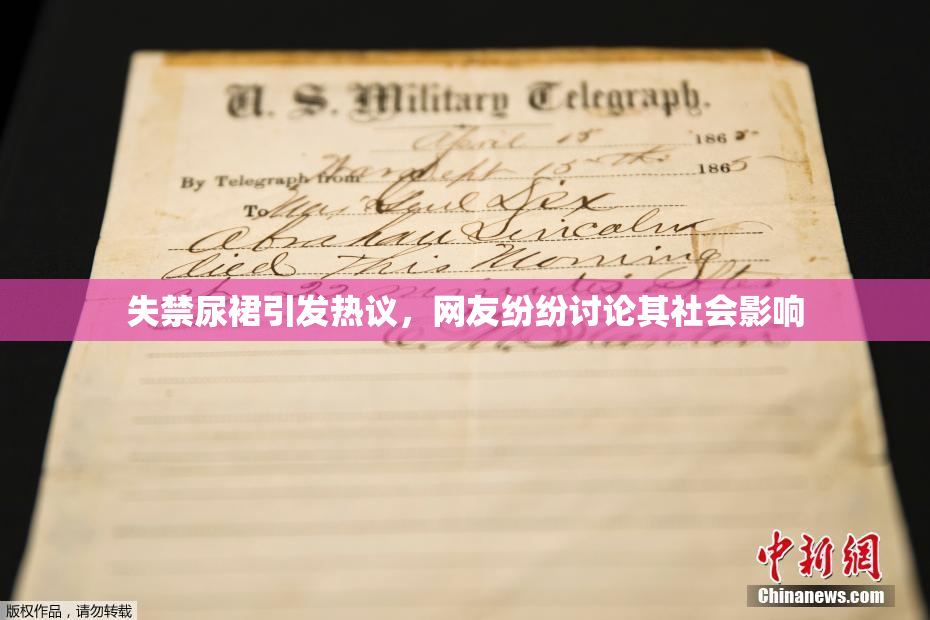 U. S. Military Telegraph.
April 15 1865
By Telegraph from War Dept 15th 1865
To Maj Genl Dix
Abraham Lincoln
died this Morning
at 22 minutes after
失禁尿裙引发热议，网友纷纷讨论其社会影响
E. M. Stanton
中新网
Chinanews.com
版权作品，请勿转载